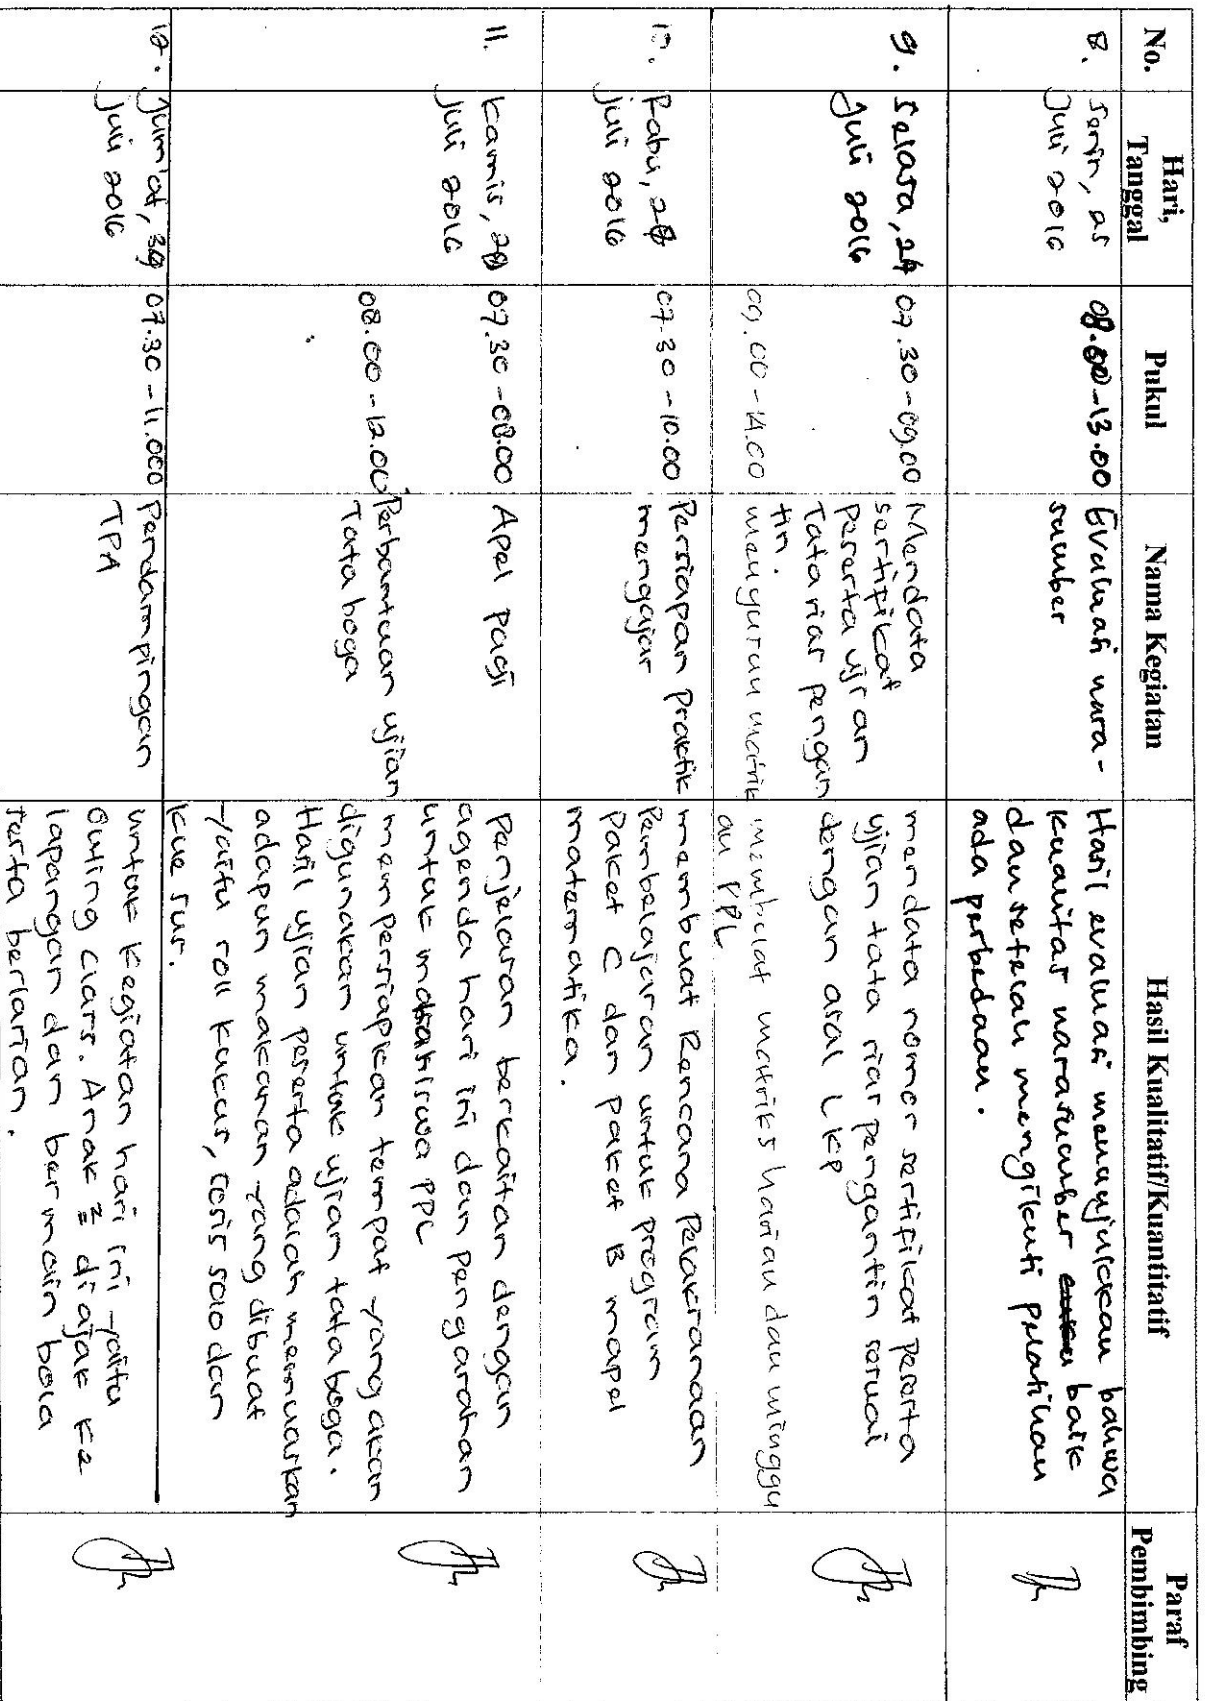 No.
Hari,
Tanggal
Pukul
Nama Kegiatan
Hasil Kualitatif/Kuantitatif
Paraf
Pembimbing
8.
Senin, 25
Juli 2016
08.00-13.00
Evaluasi nara-
sumber
Hasil evaluasi menunjukkan bahwa
kualitas narasumber baik
dan setelah mengikuti pelatihan
ada perbedaan.
9.
Selasa, 26
Juli 2016
07.30-09.00
Mendata
sertifikat
peserta ujian
Tata rias pengan
tin.
mendata nomer sertifikat peserta
ujian tata rias pengantin sesuai
dengan asal LKP
09.00-14.00
menyusun matrik
membuat matriks harian dan minggu
an PPL
10.
Rabu, 27
Juli 2016
07.30-10.00
Persiapan praktik
mengajar
membuat Rencana Pelaksanaan
Pembelajaran untuk program
paket C dan paket B mapel
matematika.
11.
Kamis, 28
Juli 2016
07.30-08.00
Apel pagi
Penjelasan berkaitan dengan
agenda hari ini dan pengarahan
untuk mahasiswa PPL
08.00-12.00
Perbantuan ujian
Tata boga
mempersiapkan tempat yang akan
digunakan untuk ujian tata boga.
Hasil ujian peserta adalah memuaskan
adapun makanan yang dibuat
yaitu roll kukus, sosis solo dan
kue sus.
12.
Jum'at, 29
Juli 2016
07.30-11.000
Pendampingan
TPA
untuk kegiatan hari ini yaitu
outing class. Anak2 di ajak ke
lapangan dan bermain bola
serta berlarian.